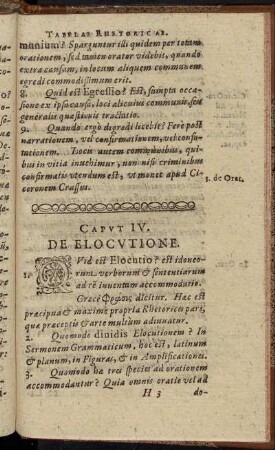 TABELAE RHETORICAE.
munium? Sparguntur illi quidem per totam
orationem, sed tamen orator videbit, quando
extra causam, in locum aliquem communem
egredi commodissimum erit.
8. Quid est Egressio? Est, sumpta occa
sione ex ipsa causa, loci alicuius communis seu
generalis quæstionis tractatio.
9. Quando ergo digredi licebit? Ferè post
narrationem, vel confirmationem, vel confu
tationem. Locis autem communibus, qui
bus in vitia inuehimur, non nisi criminibus
confirmatis vtendum est, vt monet apud Ci-
3. de Orat.
ceronem Crassus.
CAPVT IV.
DE ELOCVTIONE.
1. QVid est Elocutio? est idoneo-
rum verborum & sententiarum
ad rē inuentam accommodatio.
Græcè φράσις dicitur. Hac est
præcipua & maximè propria Rhetorices pars,
quæ præceptis & arte multùm adiuuatur.
2. Quomodo diuidis Elocutionem? In
Sermonem Grammaticum, hoc est, latinum
& planum, in Figuras, & in Amplificationes.
3. Quomodo hæ tres species ad orationem
accommodantur? Quia omnis oratio vel ad
H 3 do-